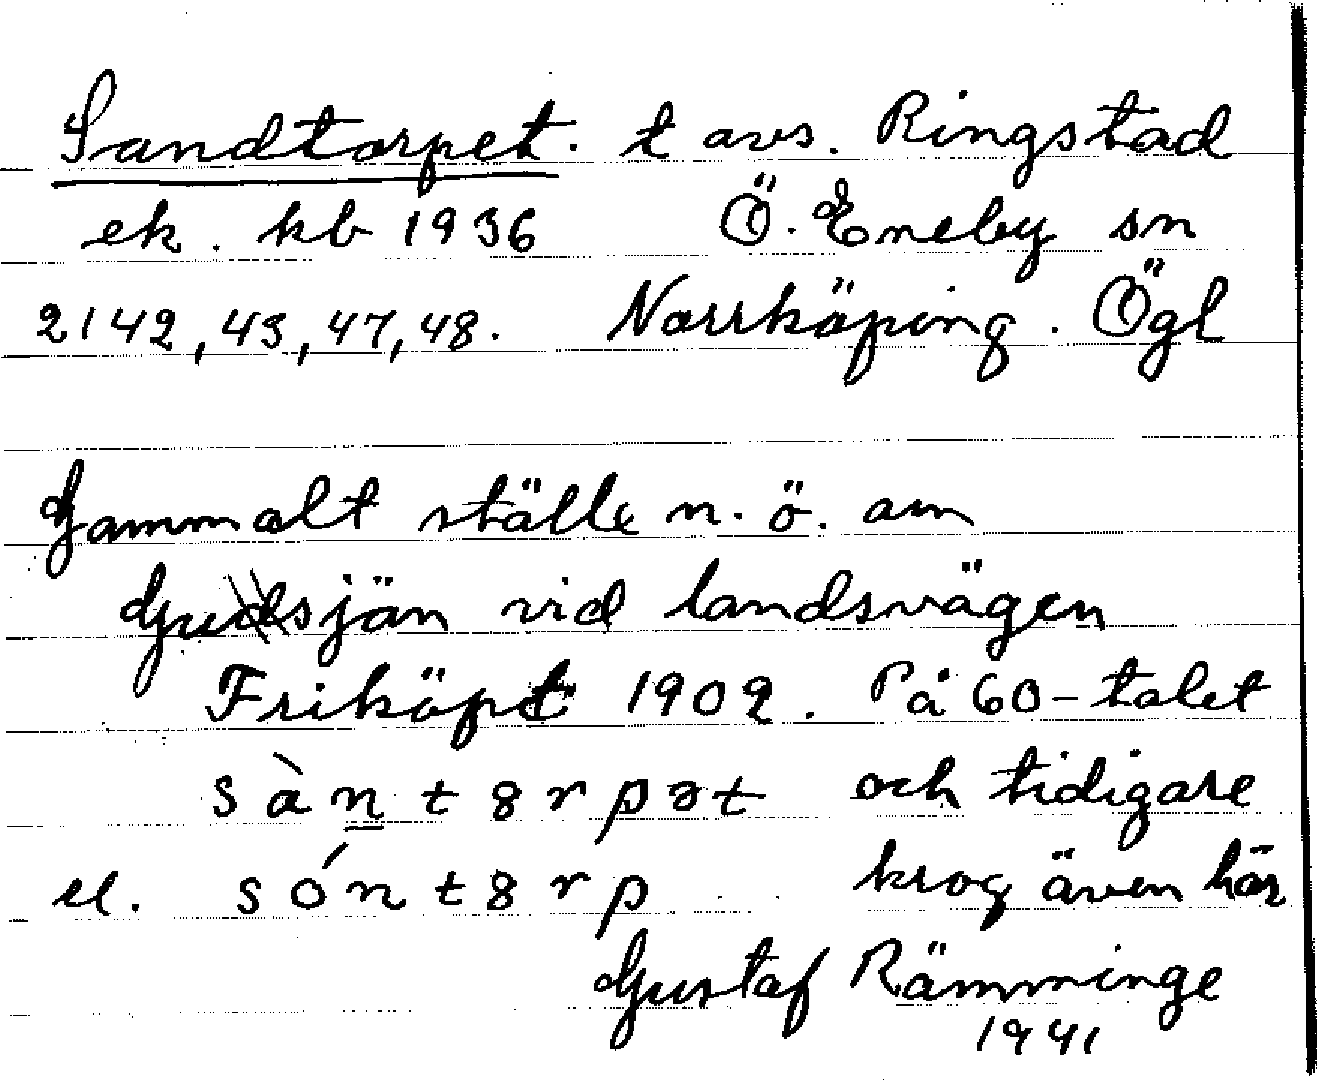 Sandtorpet. t avs. Ringstad
ek. kb 1936 Ö. Eneby sn
2142, 43, 47, 48. Norrköping. Ögl
Gammalt ställe n. ö. om
Gudsjön vid landsvägen
Friköpt 1902. På 60-talet
sàntȣrpət och tidigare
el. sóntȣrp krog även här
Gustaf Rämminge
1941